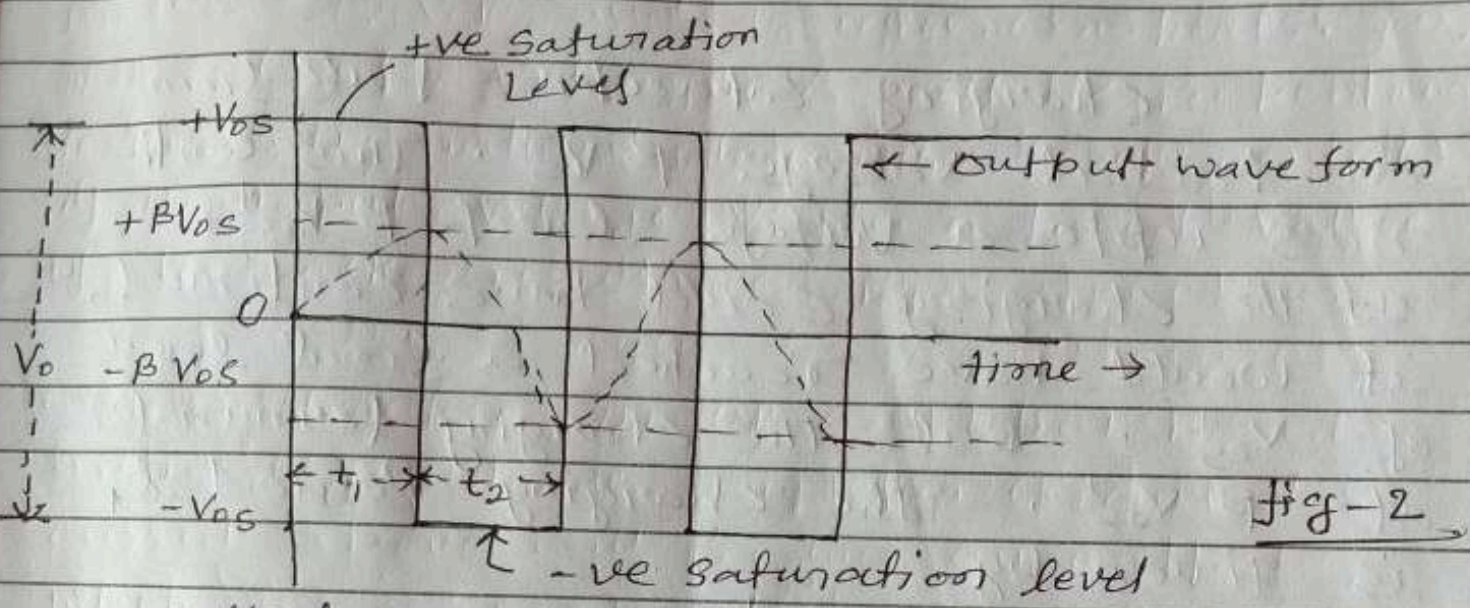 +ve saturation
Level
+Vos
← output wave form
+βVos
0
Vo
-β Vos
time →
← t1 →← t2 →
-Vos
fig-2
-ve saturation level